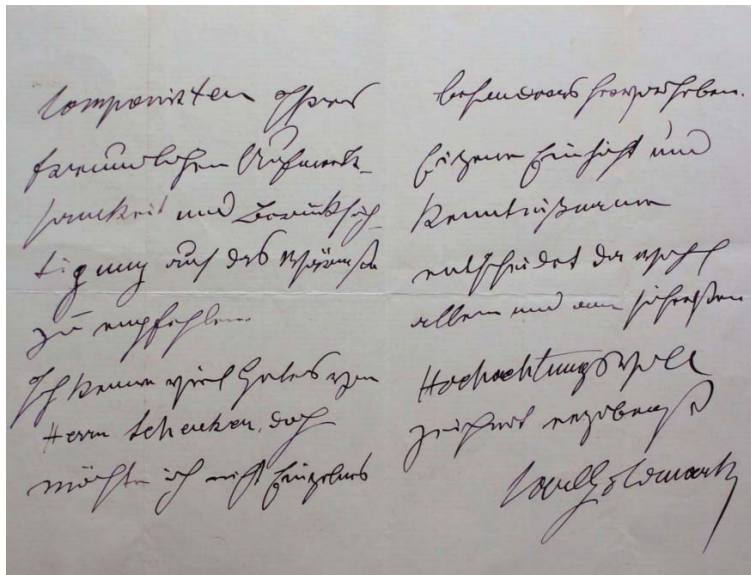 Componisten Ihrer
freundlichen Aufmerk-
samkeit und Berücksich-
tigung auf das Wärmste
zu empfehlen.
Ich kenne viel Gutes von
Herrn Schenker, doch
möchte ich nicht Einzelnes
besonders hervorheben.
Eigene Einsicht und
Kenntnißnahme
entscheidet da wohl
allein und am sichersten
Hochachtungsvoll
zeichnet ergebenst
Carl Goldmark